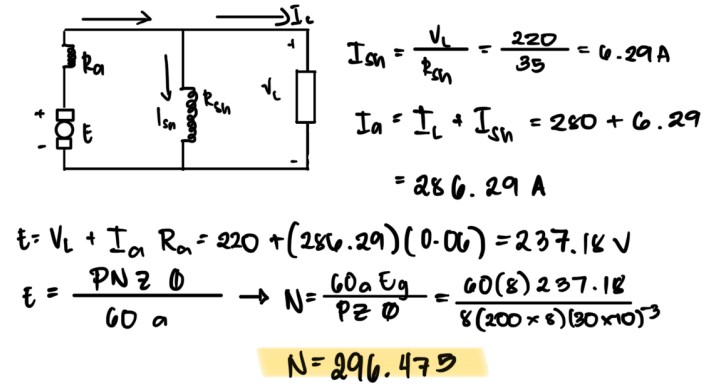 I_L
R_a
+
E
-
I_sh
R_sh
+
V_L
-
I_sh = V_L / R_sh = 220 / 35 = 6.29 A
I_a = I_L + I_sh = 280 + 6.29
= 286.29 A
E = V_L + I_a R_a = 220 + (286.29)(0.06) = 237.18 V
E = PNZØ / 60 a → N = 60a Eg / PZØ = 60(8) 237.18 / 8(200 x 8)(30 x 10)^-3
N = 296.475